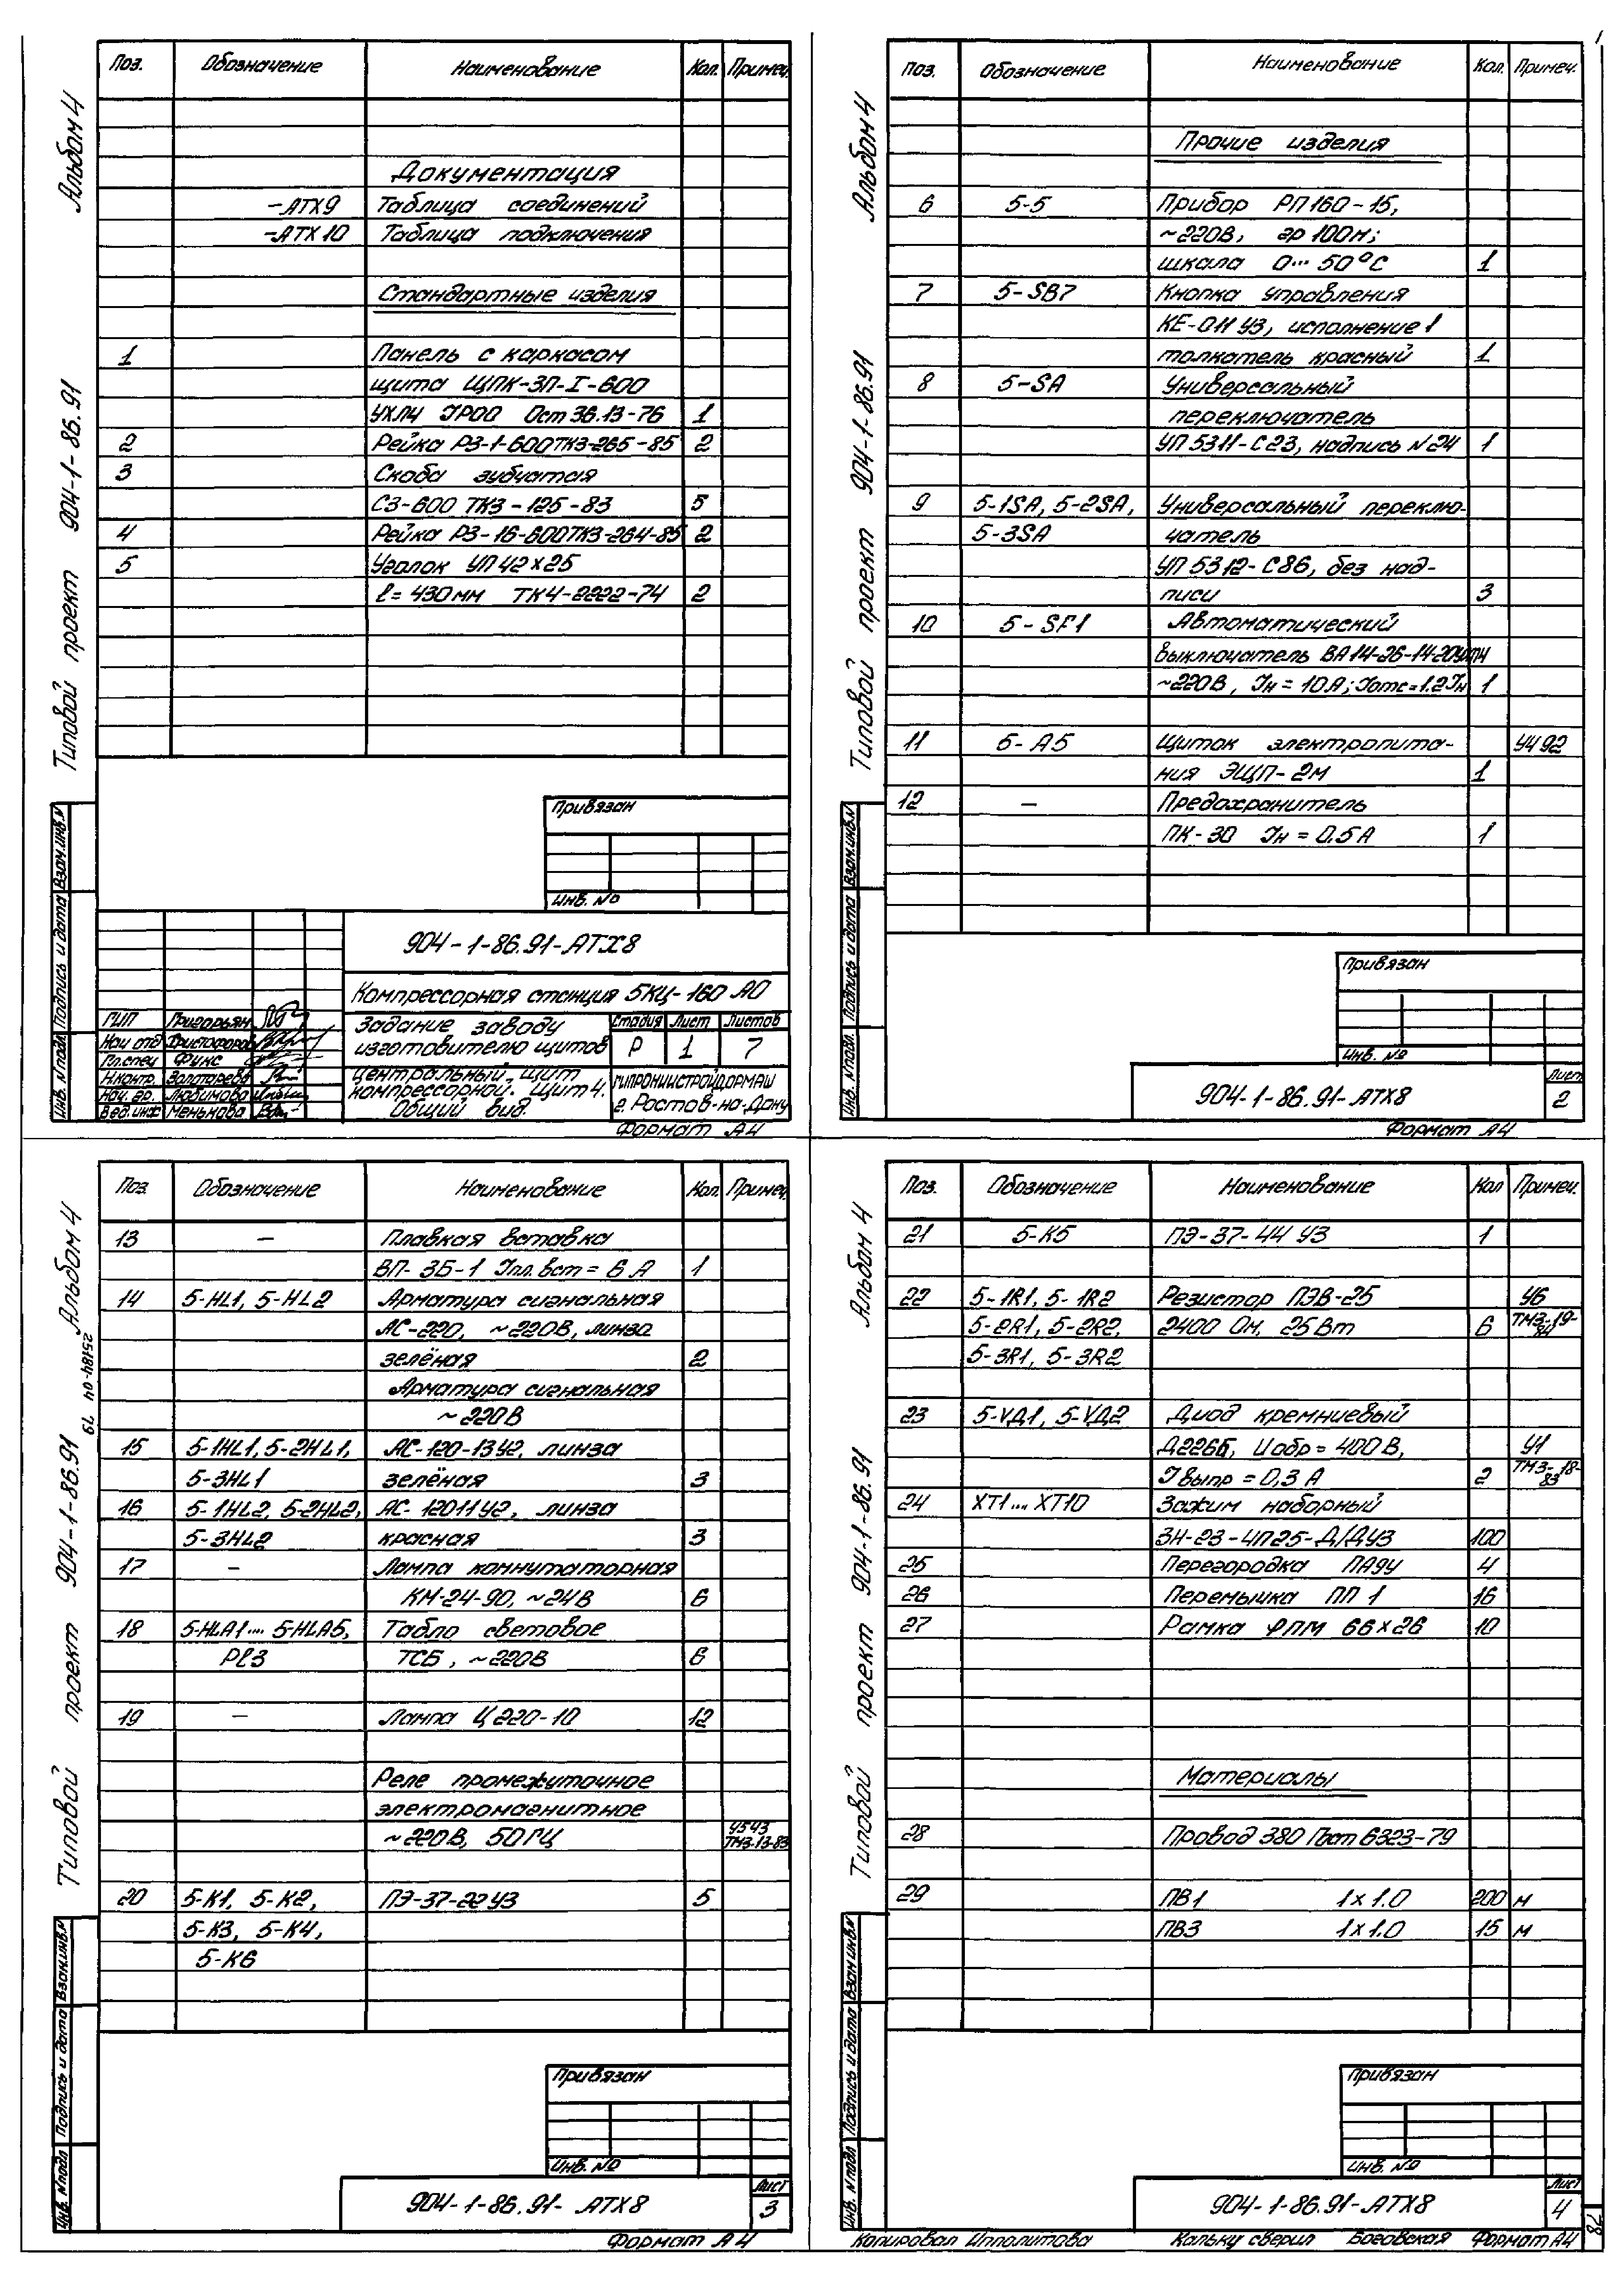 Альбом 4
Типовой проект 904-1-86.91
Поз. Обозначение Наименование Кол. Примеч.
Документация
-АТХ9 Таблица соединений
-АТХ10 Таблица подключения
Стандартные изделия
1 Панель с каркасом
щита ЩПК-ЗП-I-600
УХЛ4 IР00 Ост 36.13-76 1
2 Рейка РЗ-1-600ТК3-265-85 2
3 Скоба зубчатая
СЗ-600 ТК3-125-83 5
4 Рейка РЗ-16-600ТК3-264-85 2
5 Уголок УП 42х25
ℓ=430мм ТК4-2222-74 2
Привязан
Инв. №
904-1-86.91-АТХ8
Компрессорная станция 5КЦ-160 АО
ГИП Григорьян
Нач отд Христофоров
Гл.спец Фукс
Н.контр. Золотарева
Нач. гр. Любимова
Вед.инж Менькова
Задание заводу
изготовителю щитов
Центральный щит
компрессорной. Щит 4.
Общий вид.
Стадия Лист Листов
Р 1 7
ГИПРОНИИСТРОЙДОРМАШ
г. Ростов-на-Дону
Формат А4
Инв. № подл. Подпись и дата Взам.инв.№
Альбом 4
Типовой проект 904-1-86.91
Поз. Обозначение Наименование Кол. Примеч.
Прочие изделия
6 5-5 Прибор РП160-15,
~220В, гр 100м;
шкала 0...50°С 1
7 5-SB7 Кнопка управления
КЕ-011 У3, исполнение 1
толкатель красный 1
8 5-SA Универсальный
переключатель
УП 5311-С23, надпись №24 1
9 5-1SA, 5-2SA, Универсальный переклю-
5-3SA чатель
УП 5312-С86, без над-
писи 3
10 5-SF1 Автоматический
выключатель ВА14-26-14-20
~220В, Iн=10А; Iотс=1.2Iн 1
11 5-А5 Щиток электропита- У492
ния ЭЩП-2м 1
12 — Предохранитель
ПК-30 Iн=0.5А 1
Привязан
Инв. №
904-1-86.91-АТХ8
Лист
2
Формат А4
Инв. № подл. Подпись и дата Взам.инв.№
Альбом 4
25184-04 79
Типовой проект 904-1-86.91
Поз. Обозначение Наименование Кол. Примеч.
13 — Плавкая вставка
ВП-3Б-1 Iпл.вст=6А 1
14 5-HL1, 5-HL2 Арматура сигнальная
АС-220, ~220В, линза
зелёная 2
Арматура сигнальная
~220В
15 5-1HL1, 5-2HL1, АС-120-13У2, линза
5-3HL1 зелёная 3
16 5-1HL2, 5-2HL2, АС-12011У2, линза
5-3HL2 красная 3
17 — Лампа коммутаторная
КМ-24-90, ~24В 6
18 5-HLA1.... 5-HLA5, Табло световое
Рℓ3 ТСБ, ~220В 6
19 — Лампа Ц 220-10 12
Реле промежуточное
электромагнитное
~220В, 50ГЦ У5У3
ТМ3-13-83
20 5-К1, 5-К2, ПЭ-37-22У3 5
5-К3, 5-К4,
5-К6
Привязан
Инв. №
904-1-86.91-АТХ8
Лист
3
Формат А4
Инв. № подл Подпись и дата Взам.инв.№
Альбом 4
Типовой проект 904-1-86.91
Поз. Обозначение Наименование Кол Примеч.
21 5-К5 ПЭ-37-44 У3 1
22 5-1R1, 5-1R2 Резистор ПЭВ-25 У6
5-2R1, 5-2R2, 2400 Ом, 25Вт 6 ТМ3-19-84
5-3R1, 5-3R2
23 5-VД1, 5-VД2 Диод кремниевый
Д226Б, Uобр=400В, У1
Iвыпр=0,3А 2 ТМ3-18-83
24 ХТ1....ХТ10 Зажим наборный
ЗН-23-4П25-Д/ДУ3 100
25 Перегородка ПА9У 4
26 Перемычка ПП 1 16
27 Рамка ФПМ 66х26 10
Материалы
28 Провод 380 Гост 6323-79
29 ПВ1 1х1.0 200 м
ПВ3 1х1.0 15 м
Привязан
Инв. №
904-1-86.91-АТХ8
Лист
4
78
Инв. № подл Подпись и дата Взам инв.№
Копировал Ипполитова Кальку сверил Боговская Формат А4